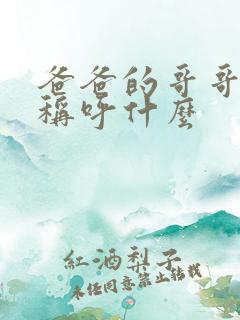 爸爸的哥哥
稱呼什麼
紅酒梨子
未經同意禁止轉載